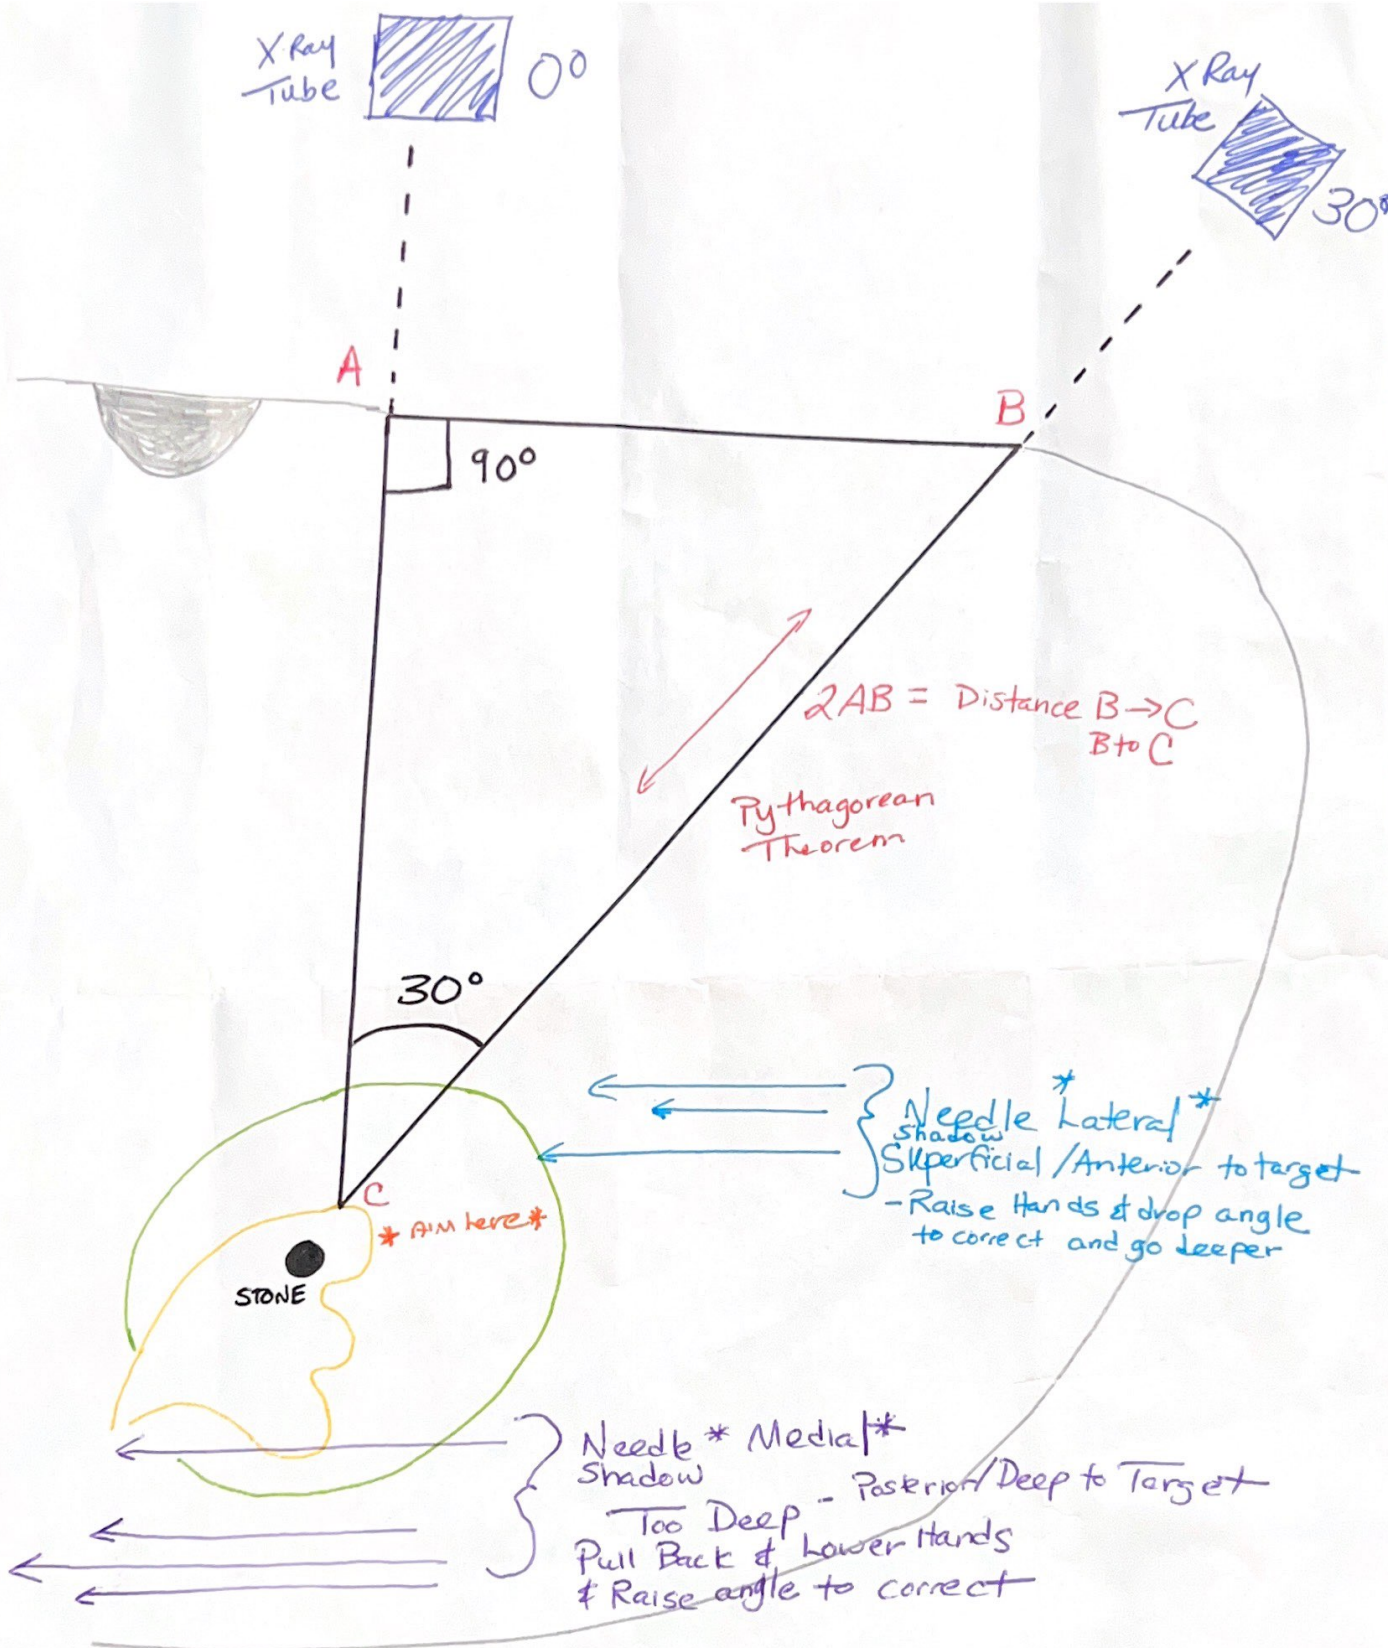 X-Ray
Tube
0°
X Ray
Tube
30°
A
B
90°
2AB = Distance B→C
B to C
Pythagorean
Theorem
30°
C
* AIM here *
STONE
Needle *Lateral*
Shadow
Superficial / Anterior to target
- Raise Hands & drop angle
to correct and go deeper
Needle * Medial *
Shadow
Too Deep - Posterior/Deep to Target
Pull Back & Lower Hands
& Raise angle to correct